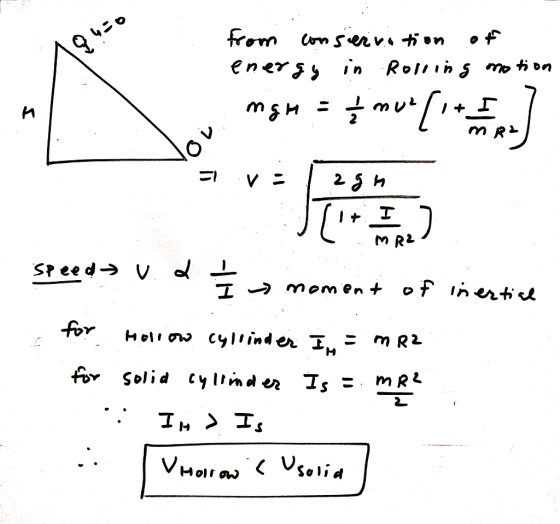 u=0
from conservation of
energy in Rolling motion
H
mgH = 1/2 mv² [1 + I/mR²]
v
⇒ v = √(2gH / (1 + I/mR²))
speed → v α 1/I → moment of inertial
for Hollow cyllinder I_H = mR2
for solid cyllinder I_S = mR²/2
∵ I_H > I_S
∴ V_Hollow < V_solid